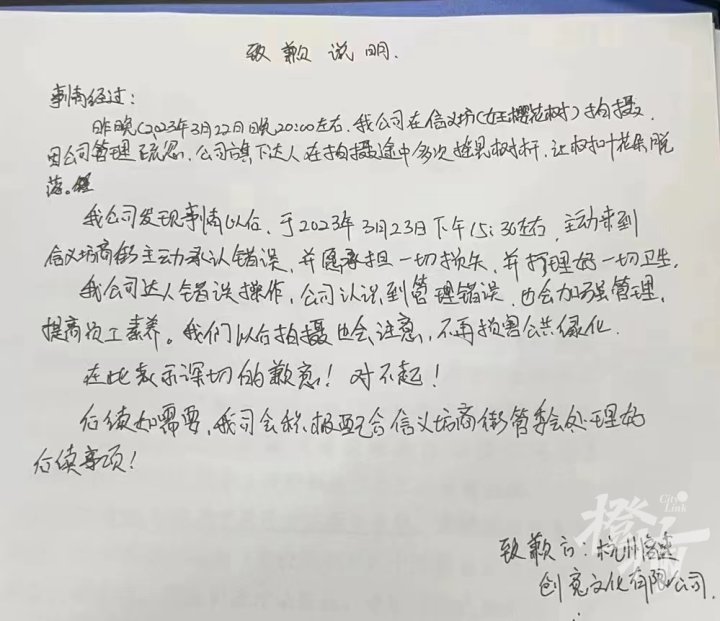 致歉说明.
事情经过:
昨晚(2023年3月22日晚20:00左右,我公司在信义坊(女王樱花树)拍摄.
因公司管理疏忽,公司旗下达人在拍摄途中多次摇晃树杆,让树叶花朵脱
落。
我公司发现事情以后,于2023年3月23日下午15:30左右,主动来到
信义坊商街主动承认错误,并愿承担一切损失,并打理好一切卫生.
我公司达人错误操作,公司认识到管理错误,也会加强管理,
提高员工素养。我们以后拍摄也会注意,不再损害公共绿化.
在此表示深切的歉意!对不起!
后续如需要,我司会积极配合信义坊商街管委会处理好
后续事项!
致歉方:杭州
创意文化有限公司.
橙柿
City
Link